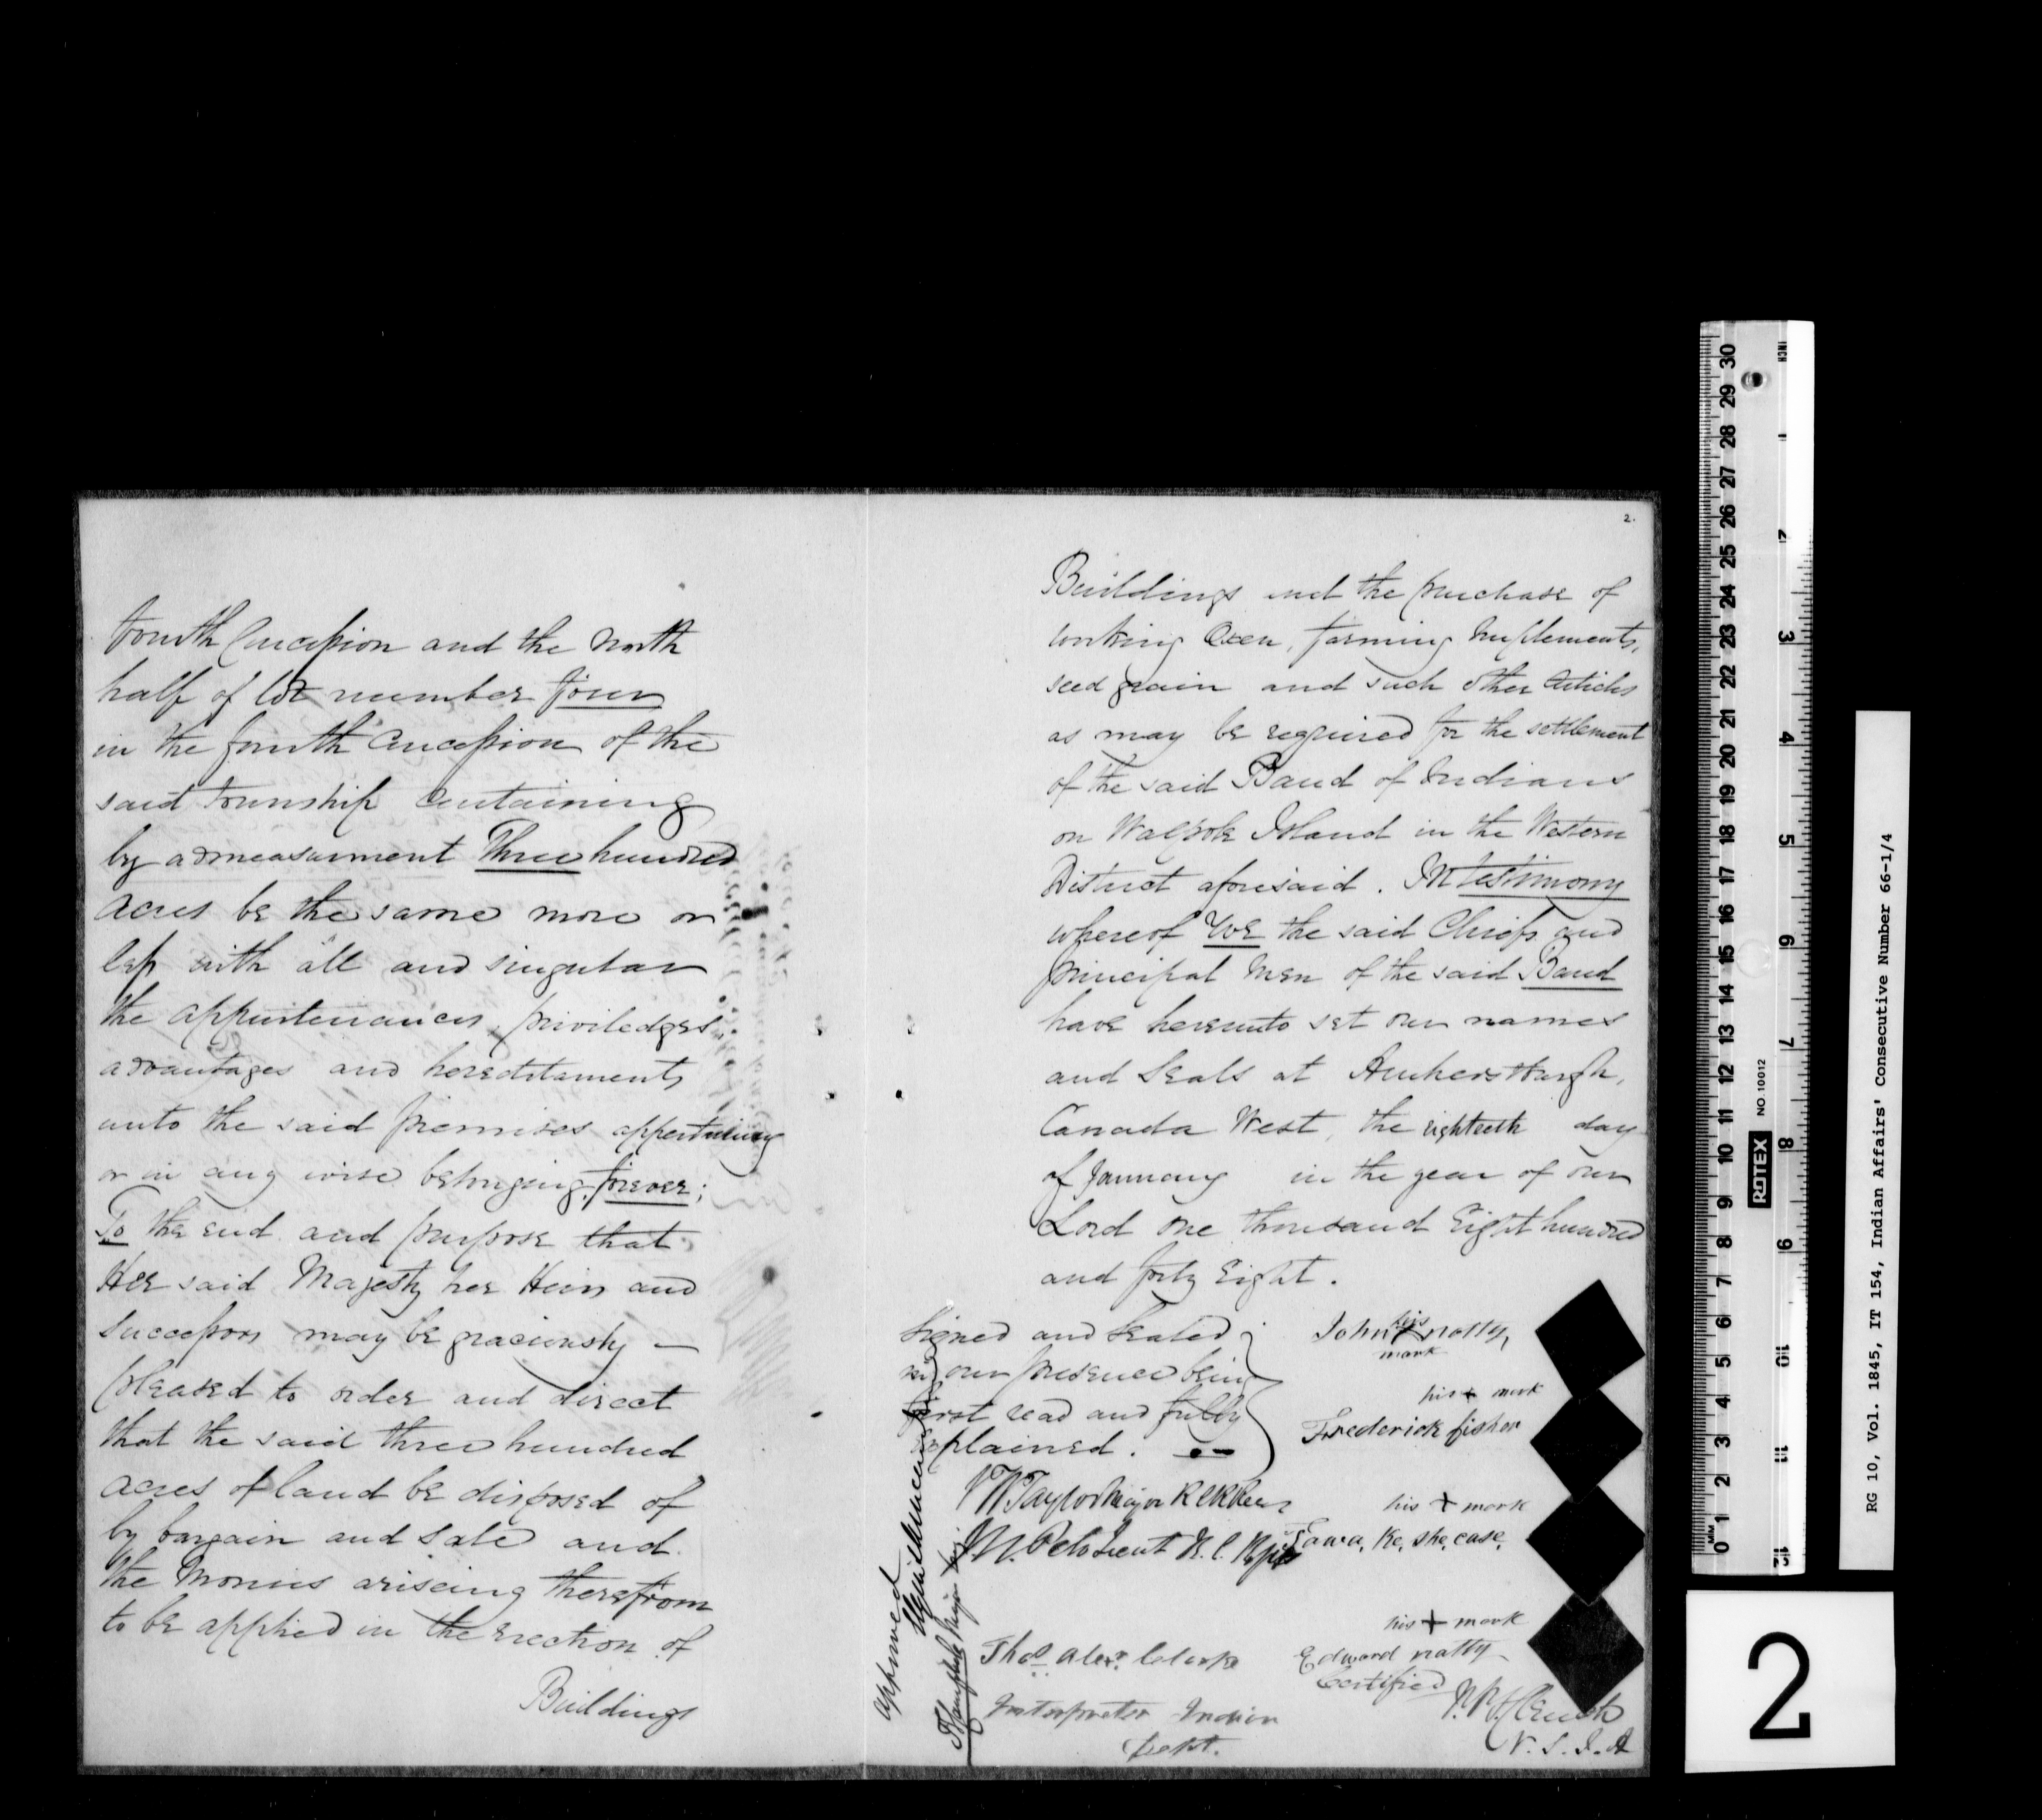 fourth Concession and the North
half of lot number four
in the fourth Concession of the
said township Containing
by admeasurment Three hundred
Acres be the same more or
less with all and singular
the appurtenances, priviledges
advantages and hereditaments
unto the said premises appertaining
or in any wise belonging, forever;
To the end and purpose that
Her said Majesty her Heirs and
Successors may be graciously —
pleased to order and direct
that the said three hundred
acres of land be disposed of
by bargain and Sale and
the Monies ariseing therefrom
to be applied in the erection of
Buildings
2.
Buildings and the purchase of
working Oxen, farming Implements,
seed grain and such other Articles
as may be required for the settlement
of the said Band of Indians
on Walpole Island in the Western
District aforesaid. In testimony
whereof We the said Chiefs and
principal Men of the said Band
have hereunto set our names
and Seals at Amherstburgh,
Canada West, the eighteeth day
of January in the year of our
Lord one thousand Eight hundred
and forty Eight.
Signed and Sealed
in our presence being
first read and fully
explained.
Taylor Major
Thos. Alexr. Clarke
Interpreter Indian
Dept.
approved
John his + mark natty
his + mark
Frederick fisher
his + mark
Tawa, Ke, she, case,
his + mark
Edward natty
Certified
V. S. I. A
INCH
30 29 28 27 26 25 24 23 22 21 20 19 18 17 16 15 14 13 12 11 10 9 8 7 6 5 4 3 2 1 0 MM
1 2 3 4 5 6 7 8 9 10 11 12
ROTEX NO 10012
RG 10, Vol. 1845, IT 154, Indian Affairs' Consecutive Number 66-1/4
2